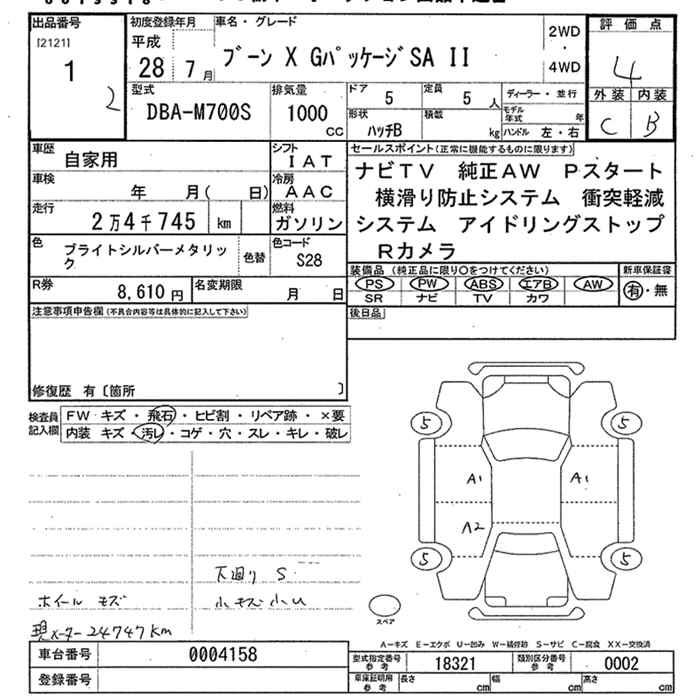 出品番号
[2121]
1
2
初度登録年月
平成
28 年 7 月
車名・グレード
ブーン X Gパッケージ SA II
2WD
・
4WD
評価点
4
外装 内装
C B
型式
DBA-M700S
排気量
1000
CC
ドア
5
定員
5 人
ディーラー・並行
形状
ハッチB
積載
kg
モデル年式 年
ハンドル 左・右
車歴
自家用
シフト
IAT
車検
年 月( 日)
冷房
AAC
走行
2万4千745 km
燃料
ガソリン
色
ブライトシルバーメタリック
色替
色コード
S28
R券
8,610 円
名変期限
月 日
セールスポイント(正常に機能するものに限ります)
ナビTV 純正AW Pスタート
横滑り防止システム 衝突軽減
システム アイドリングストップ
Rカメラ
装備品 (純正品に限り○をつけてください)
PS PW ABS エアB AW
SR ナビ TV カワ
新車保証書
有・無
後日品
注意事項申告欄(不具合内容等は具体的に記入して下さい)
修復歴 有〔箇所 〕
検査員
記入欄
FW キズ・飛石・ヒビ割・リペア跡・×要
内装 キズ・汚レ・コゲ・穴・スレ・キレ・破レ
5
5
A1
A1
A2
5
5
スペア
下廻り S
ホイール キズ
小キズ小U
現メーター24747km
A-キズ E-エクボ U-凹み W-補修跡 S-サビ C-腐食 XX-交換済
車台番号
0004158
登録番号
型式指定番号
参考
18321
類別区分番号
参考
0002
車庫証明用
参考
長さ cm
幅 cm
高さ cm